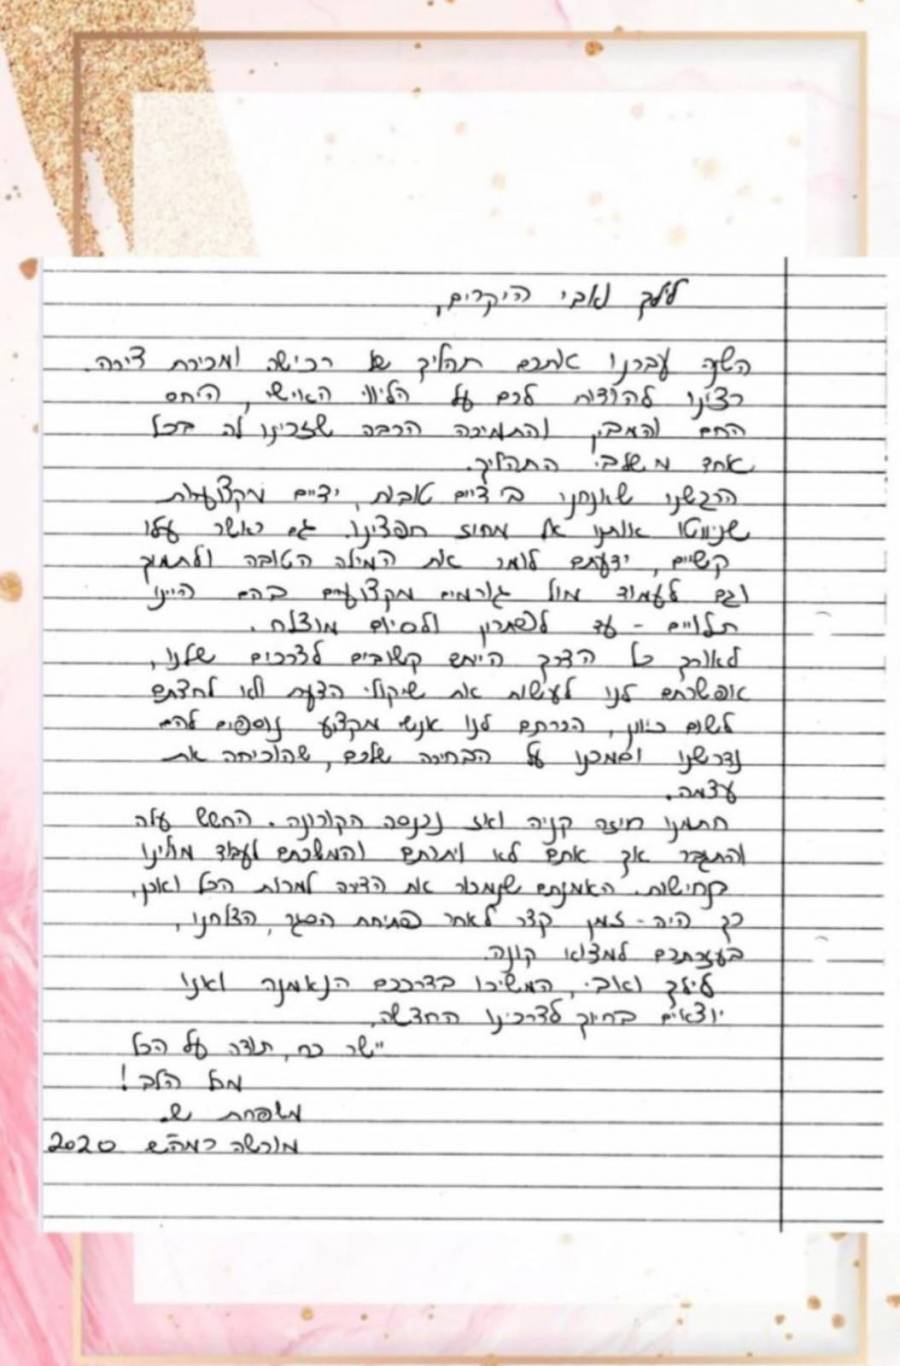 לילך ואבי היקרים,
השנה עברנו אתכם תהליך של רכישה ומכירת דירה.
רצינו להודות לכם על הליווי האישי, היחס
החם והמבין והתמיכה הרבה שזכינו לה בכל
אחד משלבי התהליך.
הרגשנו שאנחנו בידיים טובות, ידיים מקצועיות
שניווטו אותנו אל מחוז חפצינו. גם כאשר עלו
קשיים, ידעתם לומר את המילה הטובה ולתמוך
וגם לעמוד מול גורמים מקצועיים בהם היינו
תלויים - עד לפתרון ולסיום מוצלח.
לאורך כל הדרך הייתם קשובים לצרכים שלנו,
אפשרתם לנו לעשות את שיקולי הדעת ולא לחצתם
לשום כיוון, הכרתם לנו אנשי מקצוע נוספים להם
נדרשנו וסמכנו על הבחירה שלכם, שהוכיחה את
עצמה.
חתמנו חוזה קניה ואז נכנסה הקורונה. החשש עלה
והתגבר אך אתם לא ויתרתם והמשכתם לעבוד מולינו
בנחישות. האמנתם שנמכור את הדירה למרות הכל ואכן,
כך היה - זמן קצר לאחר פתיחת הסגר, הצלחנו,
בעזרתכם למצוא קונה.
לילך ואבי, המשיכו בדרככם הנאמנה ואנו
יוצאים בחיוך לדרכינו החדשה.
יישר כח, תודה על הכל
מכל הלב!
משפחת ש.
מורשה רמה"ש 2020